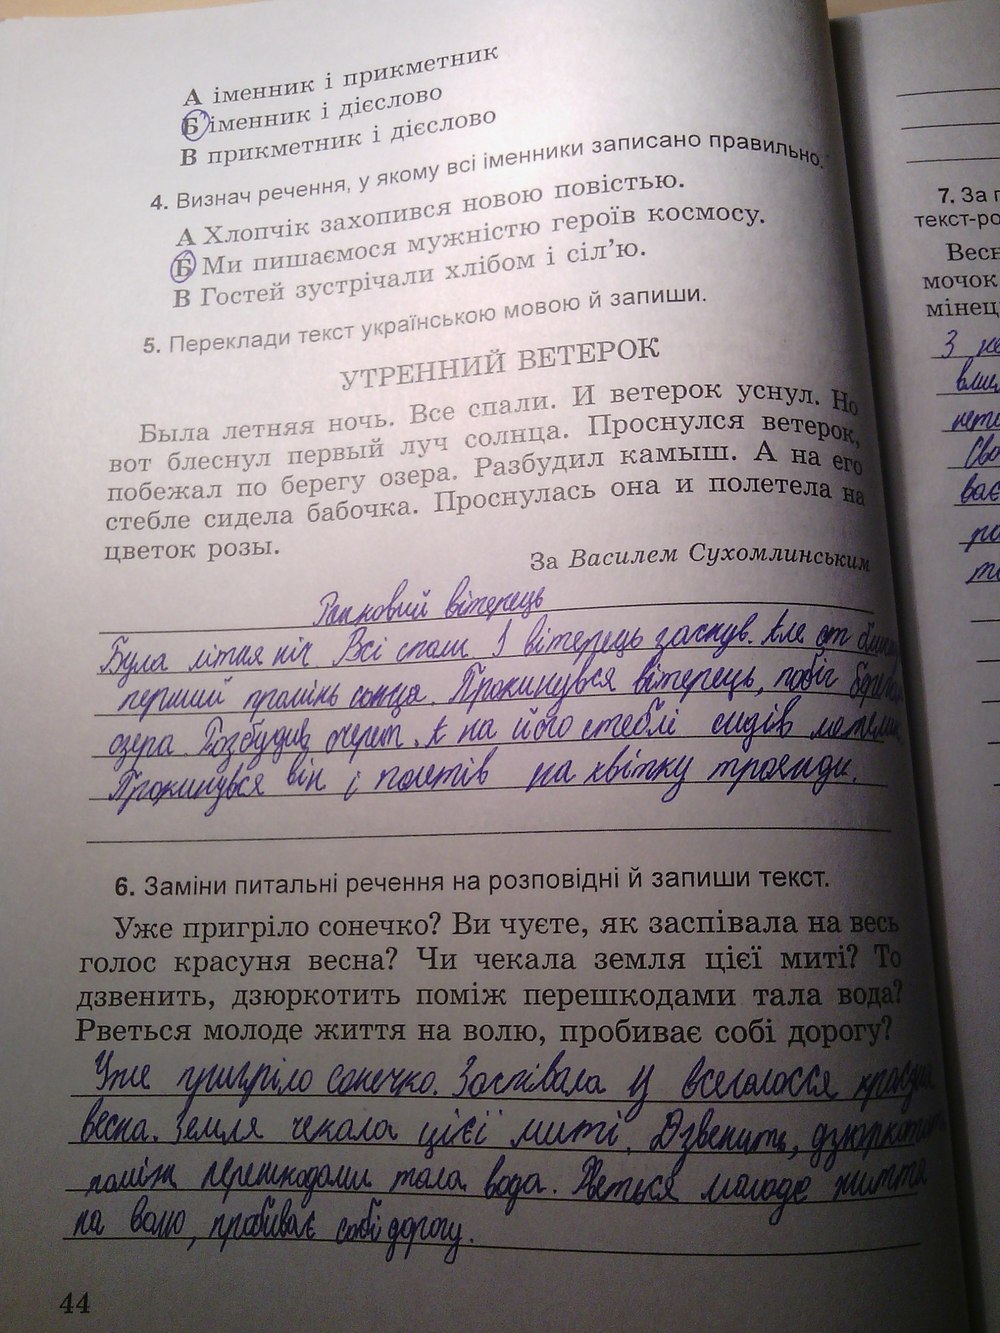 А іменник і прикметник
Б іменник і дієслово
В прикметник і дієслово
4. Визнач речення, у якому всі іменники записано правильно.
А Хлопчік захопився новою повістью.
Б Ми пишаємося мужністю героїв космосу.
В Гостей зустрічали хлібом і сіл’ю.
5. Переклади текст українською мовою й запиши.
УТРЕННИЙ ВЕТЕРОК
Была летняя ночь. Все спали. И ветерок уснул. Но
вот блеснул первый луч солнца. Проснулся ветерок,
побежал по берегу озера. Разбудил камыш. А на его
стебле сидела бабочка. Проснулась она и полетела на
цветок розы.
За Василем Сухомлинським
Ранковий вітерець
Була літня ніч Всі спали І вітерець заснув. Але от
перший промінь сонця. Прокинувся вітерець, побіг
озера. Розбудив очерет. А на його стеблі сидів метелик
Прокинувся він і полетів на квітку троянди.
6. Заміни питальні речення на розповідні й запиши текст.
Уже пригріло сонечко? Ви чуєте, як заспівала на весь
голос красуня весна? Чи чекала земля цієї миті? То
дзвенить, дзюркотить поміж перешкодами тала вода?
Рветься молоде життя на волю, пробиває собі дорогу?
Уже пригріло сонечко. Заспівала у всеголосся красуня
весна. Земля чекала цієї миті. Дзвенить, дзюркотить
поміж перешкодами тала вода. Рветься молоде життя
на волю, пробиває собі дорогу.
44
7. За
текст-ро
Весн
мочок
мінец
З